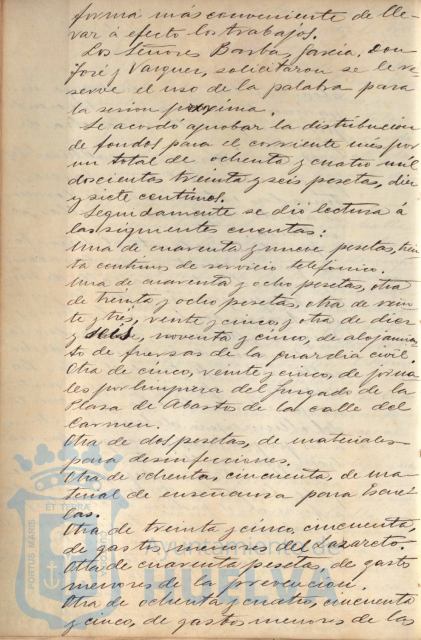 forma más conveniente de lle-
var á efecto los trabajos.
Los Señores Barba, García, Don
José y Vazquez, solicitaron se le re-
serve el uso de la palabra para
la sesion próxima.
Se acordó aprobar la distribucion
de fondos para el corriente mes por
un total de ochenta y cuatro mil
doscientas treinta y seis pesetas, diez
y siete centimos.
Seguidamente se dió lectura á
las siguientes cuentas:
Una de cuarenta y nueve pesetas, trein
ta centimos de servicio telefónico.
Una de cuarenta y ocho pesetas, otra
de treinta y ocho pesetas, otra de vein
te y tres, veinte y cinco, y otra de diez
y seis, noventa y cinco, de alojamien
to de fuerzas de la guardia civil.
Otra de cinco, veinte y cinco, de jorna-
les por limpieza del Juzgado de la
Plaza de Abastos de la calle del
Carmen.
Otra de dos pesetas, de materiales
para desinfecciones.
Otra de ochenta, cincuenta, de ma-
terial de enseñanza para Escue-
las.
Otra de treinta y cinco, cincuenta,
de gastos menores del Lazareto.
Otra de cuarenta pesetas, de gastos
menores de la prevencion.
Otra de ochenta y cuatro, cincuenta
y cinco, de gastos menores de las
PORTUS MARIS ET TERRÆ
Ayuntamiento de
HUELVA